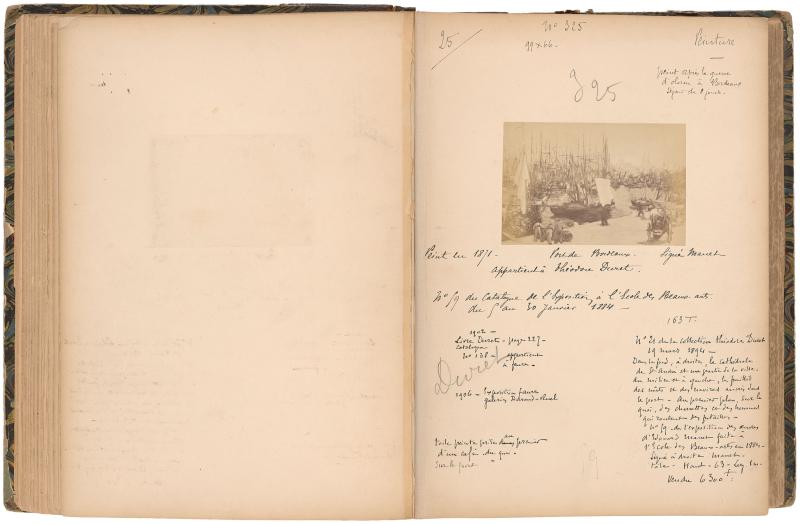 25
No 325
99 x 66 -
Peinture
peint après la guerre
à Bordeaux
séjour de 8 jours.
325
Peint en 1871 - Port de Bordeaux. Signé Manet
appartient à Théodore Duret.
No 59 du Catalogue de l'Exposition à l'École des Beaux-arts
du 5 au 30 janvier 1884 -
163 T.
1902 -
Livre Duret - page 227 -
Catalogue
No 138 - appartient
à faure -
Duret
1906 - Exposition faure
galerie Durand-Ruel
Toile peinte au premier
d'un café du quai
Sur le port -
No 21 de la collection Théodore Duret
19 mars 1894 -
Dans le fond, à droite, la cathédrale
de St André et une partie de la ville.
au milieu et à gauche, le fouillis
des mâts et des navires ancrés dans
le port - Au premier plan, sur le
quai, des charrettes et des hommes
qui roulent des futailles -
No 59 de l'exposition des œuvres
d'Edouard Manet faite à
l'École des Beaux-arts en 1884 -
Signé à droite Manet -
Toile - Haut - 63 -
Vendu 6300 f